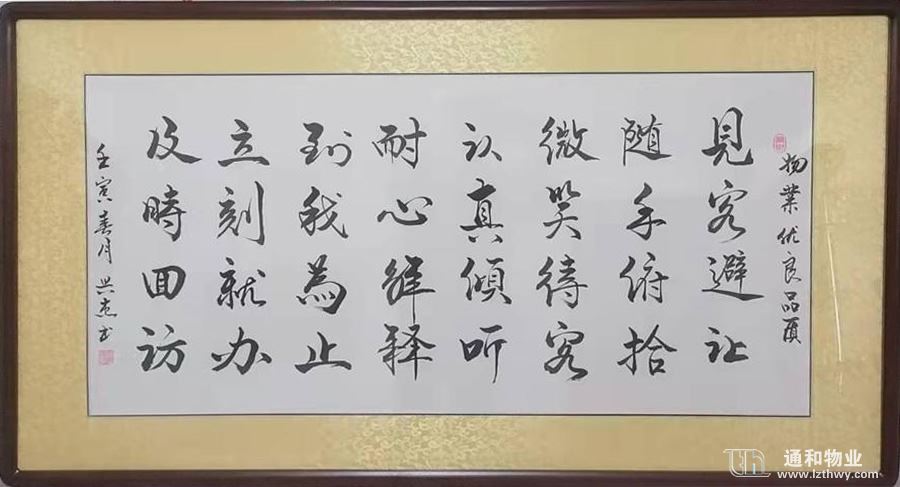 物業优良品质
見客避让
随手俯拾
微笑待客
认真傾听
耐心解释
到我為止
立刻就办
及時回访
壬寅春月
通和物业
www.lzthwy.com